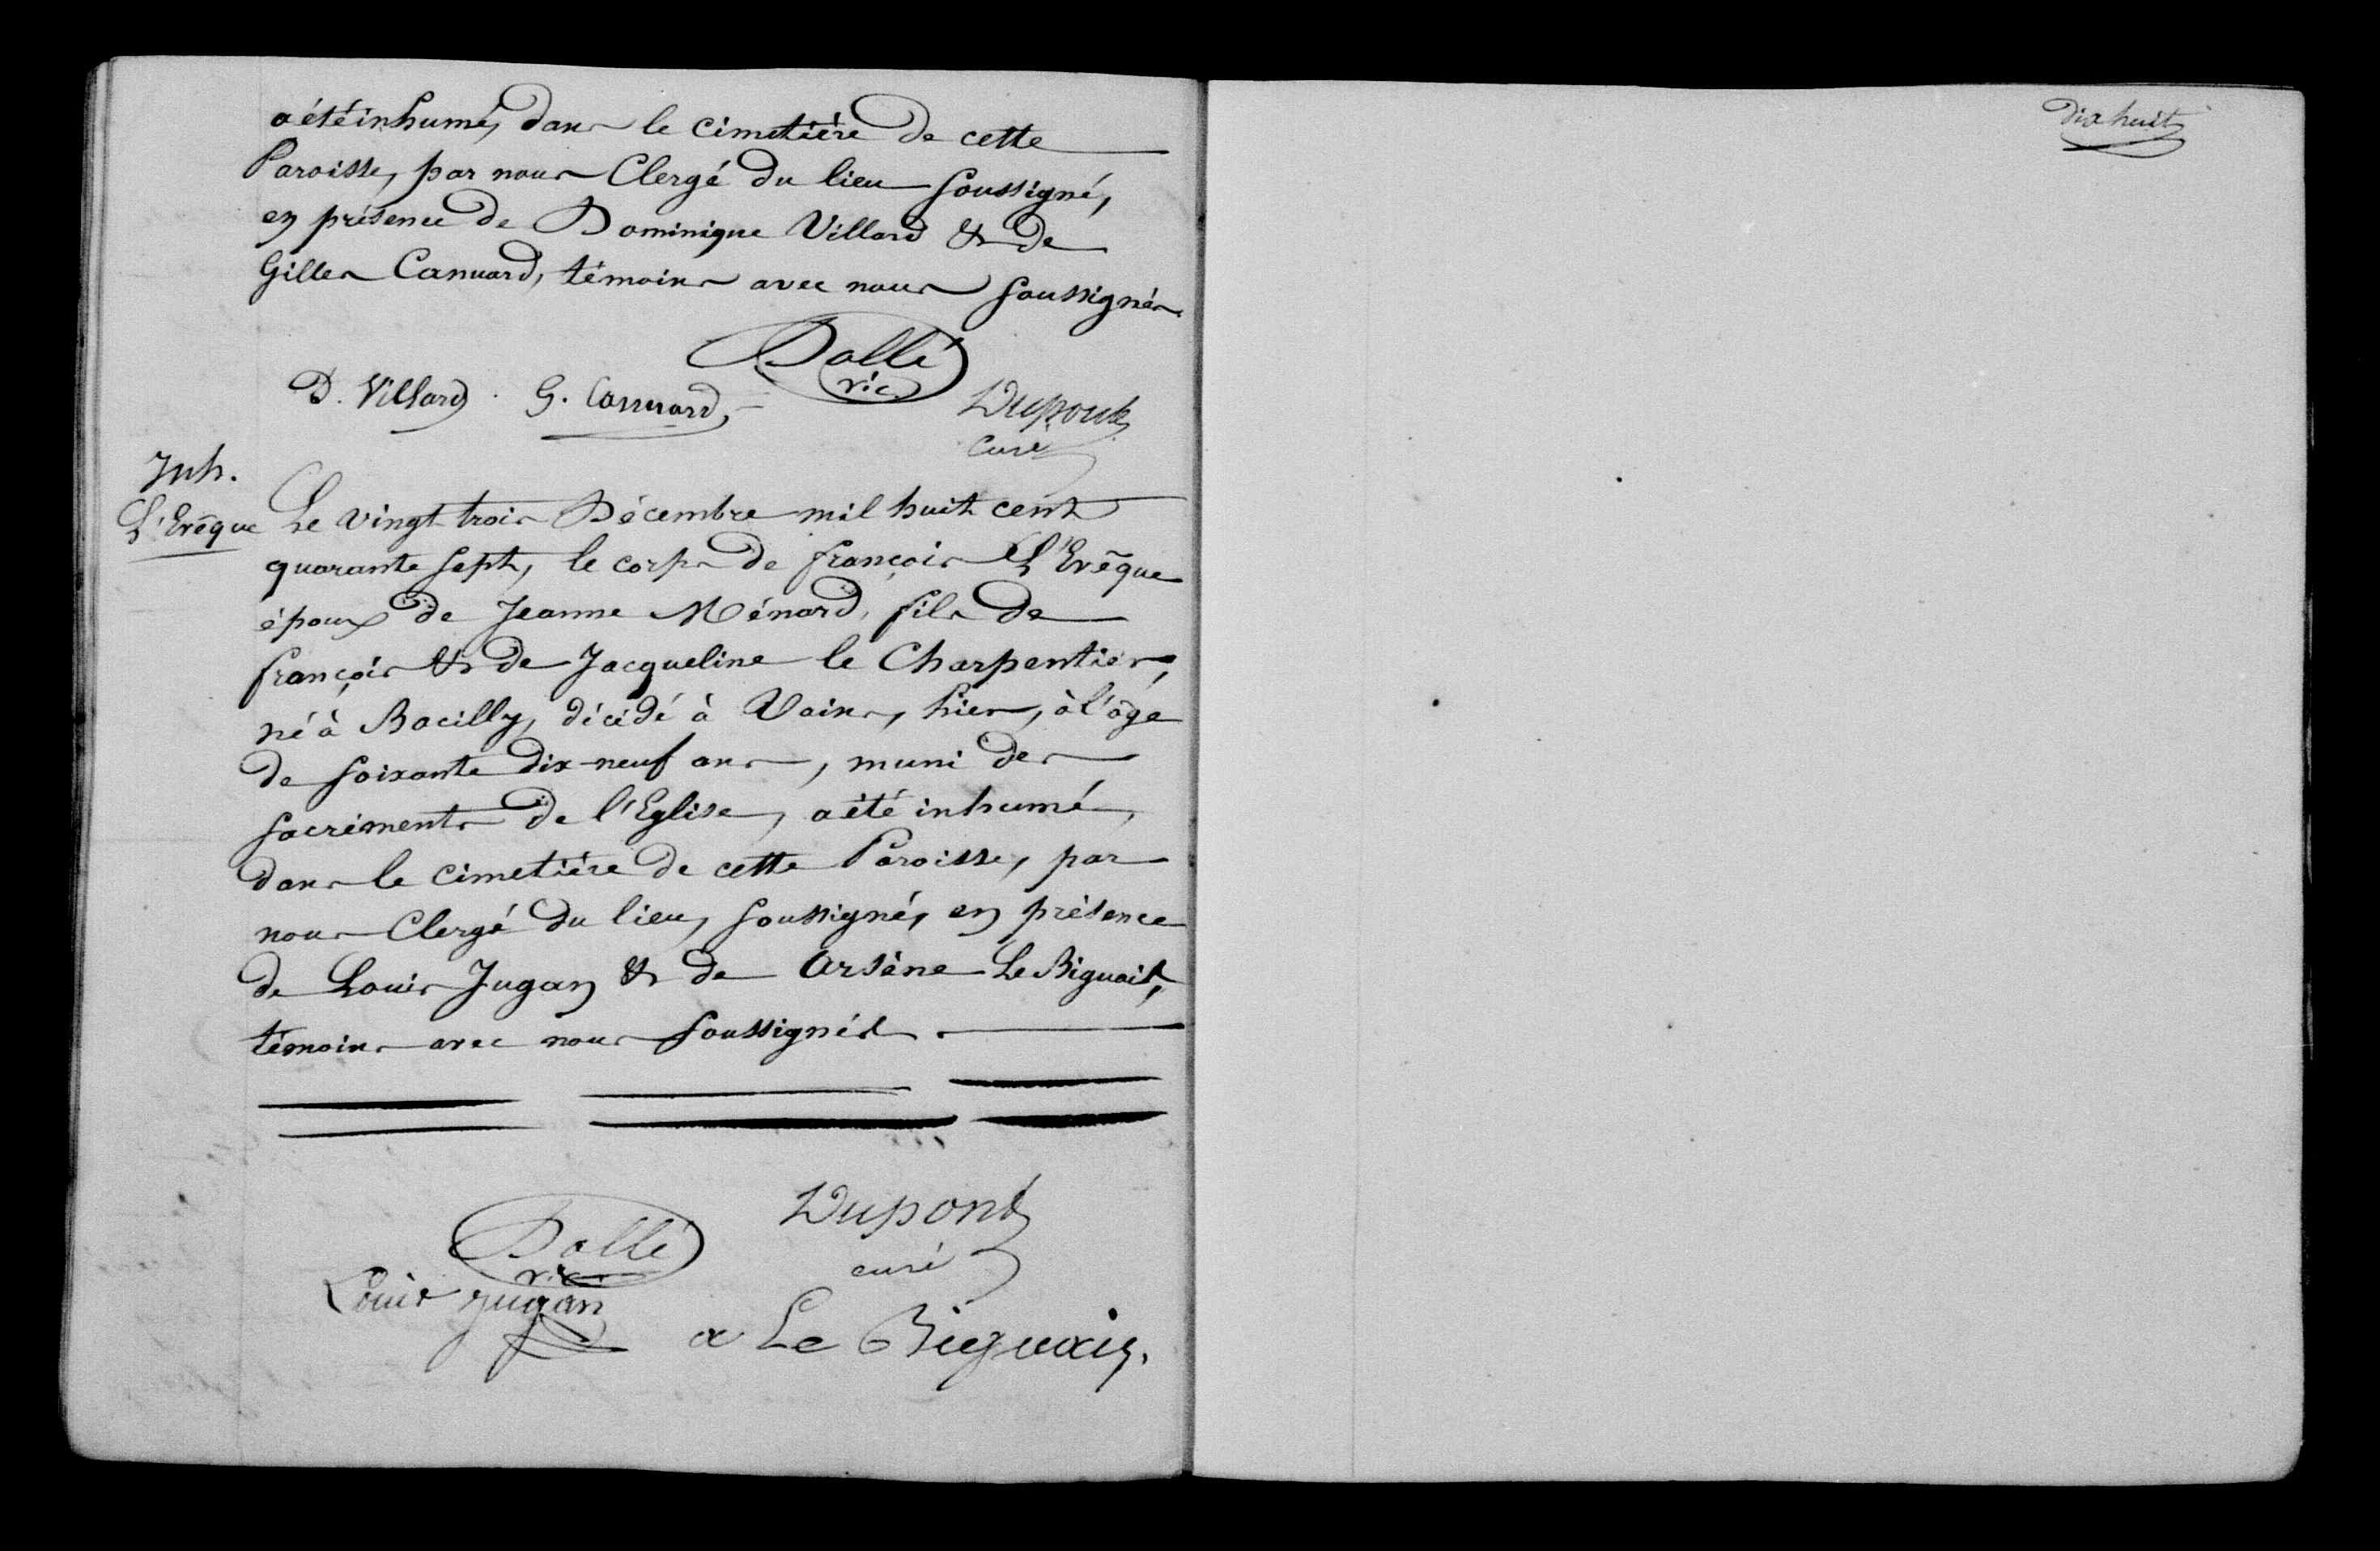 a été inhumé, dans le cimetière de cette
Paroisse, par nous Clergé du lieu soussigné,
en présence de Dominique Villard & de
Gilles Canuard, témoins avec nous soussignés.
Dallé
vic
D. Villard. G. Canuard,
Dupont
Curé
Inh.
L'Evêque
Le vingt trois Décembre mil huit cent
quarante sept, le corps de françois L'Evêque
époux de Jeanne Ménard, fils de
françois & de Jacqueline le Charpentier,
né à Bacilly, décédé à Vains, hier, à l'âge
de soixante dix-neuf ans, muni des
sacréments de l'Eglise, a été inhumé,
dans le cimetière de cette Paroisse, par
nous Clergé du lieu, soussigné, en présence
de Louis Jugan & de Arsène Le Biguais,
témoins avec nous soussignés.
Dupont
curé
Dallé
vic
Louis jugan
a Le Biguais.
Dix huit